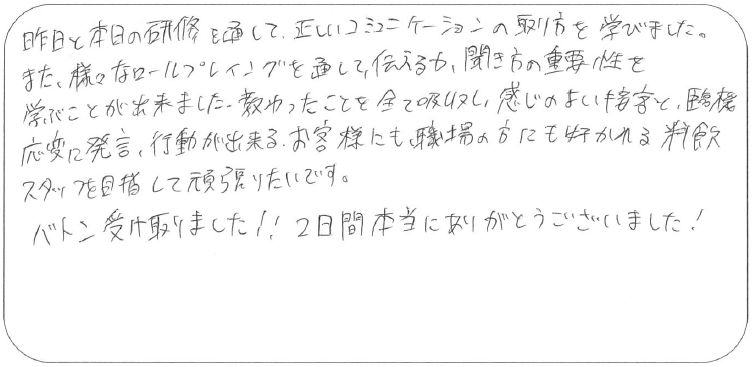 昨日と本日の研修を通して、正しいコミュニケーションの取り方を学びました。
また、様々なロールプレイングを通して、伝える力、聞き方の重要性を
学ぶことが出来ました。教わったことを全て吸収し、感じのよい接客と、臨機
応変に発言、行動が出来る、お客様にも、職場の方にも好かれる料飲
スタッフを目指して頑張りたいです。
バトン受け取りました!! 2日間本当にありがとうございました!